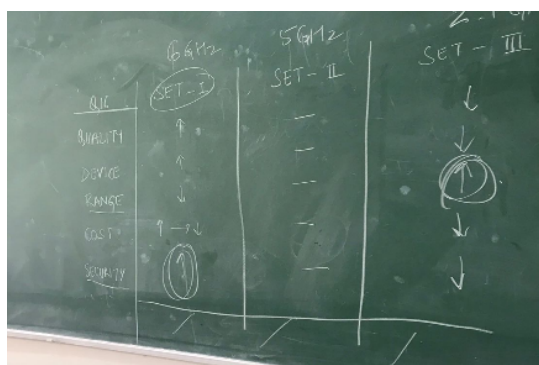 6GHz 5GHz
SET-I SET-II SET-III
QUALITY ↑ — ↓
DEVICE ↑ — ↓
RANGE ↓ — ↑
COST ↑→↓ — ↓
SECURITY ↑ — ↓